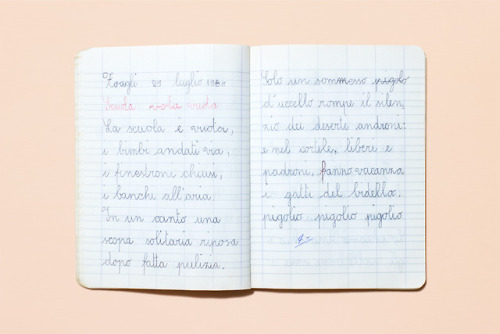 Zoagli 29 luglio
Scuola vuota
La scuola è vuota,
i bimbi andati via,
i finestroni chiusi,
i banchi all'aria;
In un canto una
scopa solitaria riposa
dopo fatta pulizia.
Solo un sommesso pigolo
d'uccello rompe il silen
zio dei deserti androni:
e nel cortile, liberi e
padroni, fanno vacanza
i gatti del bidello.
pigolio pigolio pigolio